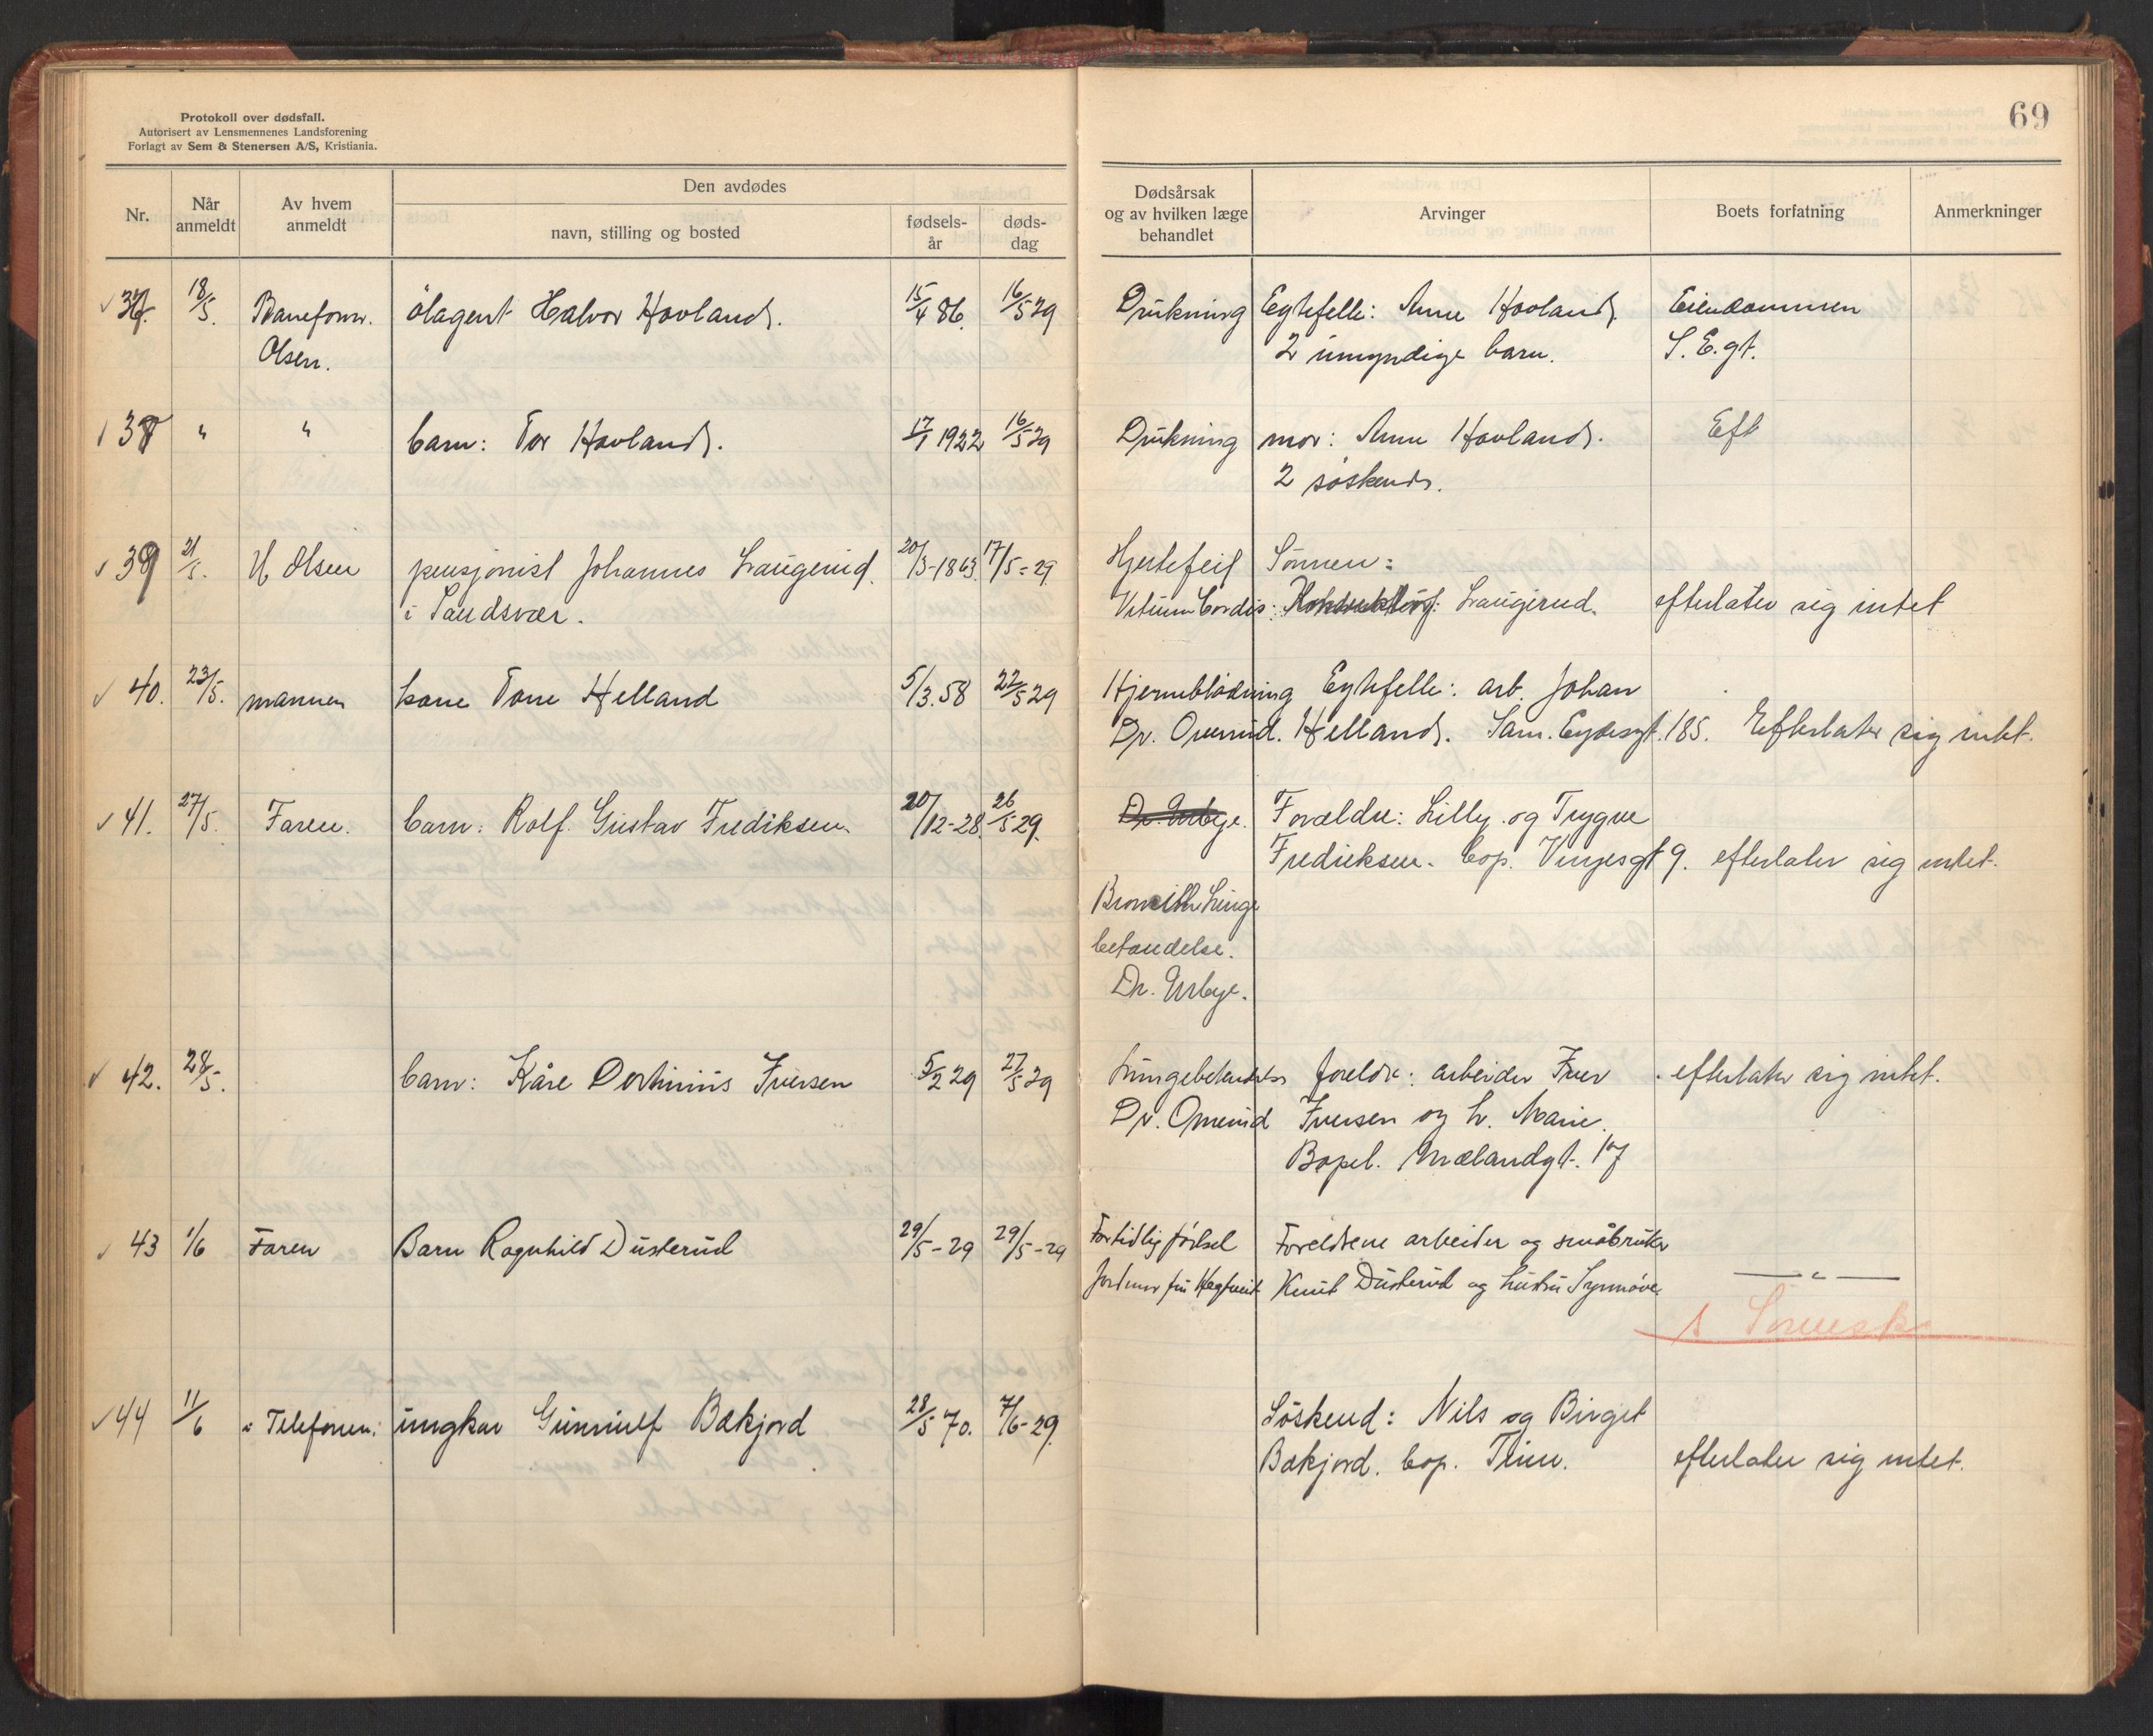 Protokoll over dødsfall.
Autorisert av Lensmennenes Landsforening
Forlagt av Sem & Stenersen A/S, Kristiania.
69
Nr.
Når anmeldt
Av hvem anmeldt
Den avdødes
navn, stilling og bosted
fødsels-år
døds-dag
Dødsårsak og av hvilken læge behandlet
Arvinger
Boets forfatning
Anmerkninger
37. 18/5. Baneform. ølagent Halvor Hovland. 15/4 86. 16/5 29 Drukning Egtefelle: Anne Hovland. Eiendommen
Olsen. 2 umyndige barn. S. E. gt.
38 " " barn: Tor Hovland. 17/1 1922 16/5 29 Drukning mor: Anne Hovland. Eft
2 søskend.
39 21/5. H Olsen pensjonist Johannes Laugerud. 20/3-1863. 17/5-29 Hjertefeil Sønnen:
i Sandsvær. Vitium Cordis: Laugerud. efterlater sig intet
40. 23/5. mannen kone Tone Helland 5/3.58 22/5 29 Hjerneblødning Egtefelle: arb. Johan
Dr. Omerud. Helland. Sam. Eydesgt. 185. Efterlater sig intet.
41. 27/5. Faren. barn: Rolf Gustav Fredriksen 20/12-28. 26/5 29. Dr. Urbye. Forældre: Lilly og Trygve
Fredriksen. bop. Vinjesgt 9. efterlater sig intet.
Lunge
betændelse.
Dr. Urbye.
42. 28/5. barn: Kåre Dortinius Iversen 5/2 29 27/5 29 Lungebetændelse foreldre: arbeider Iver efterlater sig intet.
Dr. Omerud Iversen og h. Marie.
Bopel. Mælandgt. 17
43 1/6 Faren Barn Ragnhild Dusterud 29/5-29 29/5-29 Fortidlig fødsel Foreldrene arbeider og småbruker
Jordmor fru Knut Dusterud og hustru Synnøve. —"—
44 11/6 i Telefonen: ungkar Gunnulf Bakjord 28/5 70. 7/6-29. Søskend: Nils og Birget
Bakjord. bop. Tinn. efterlater sig intet.